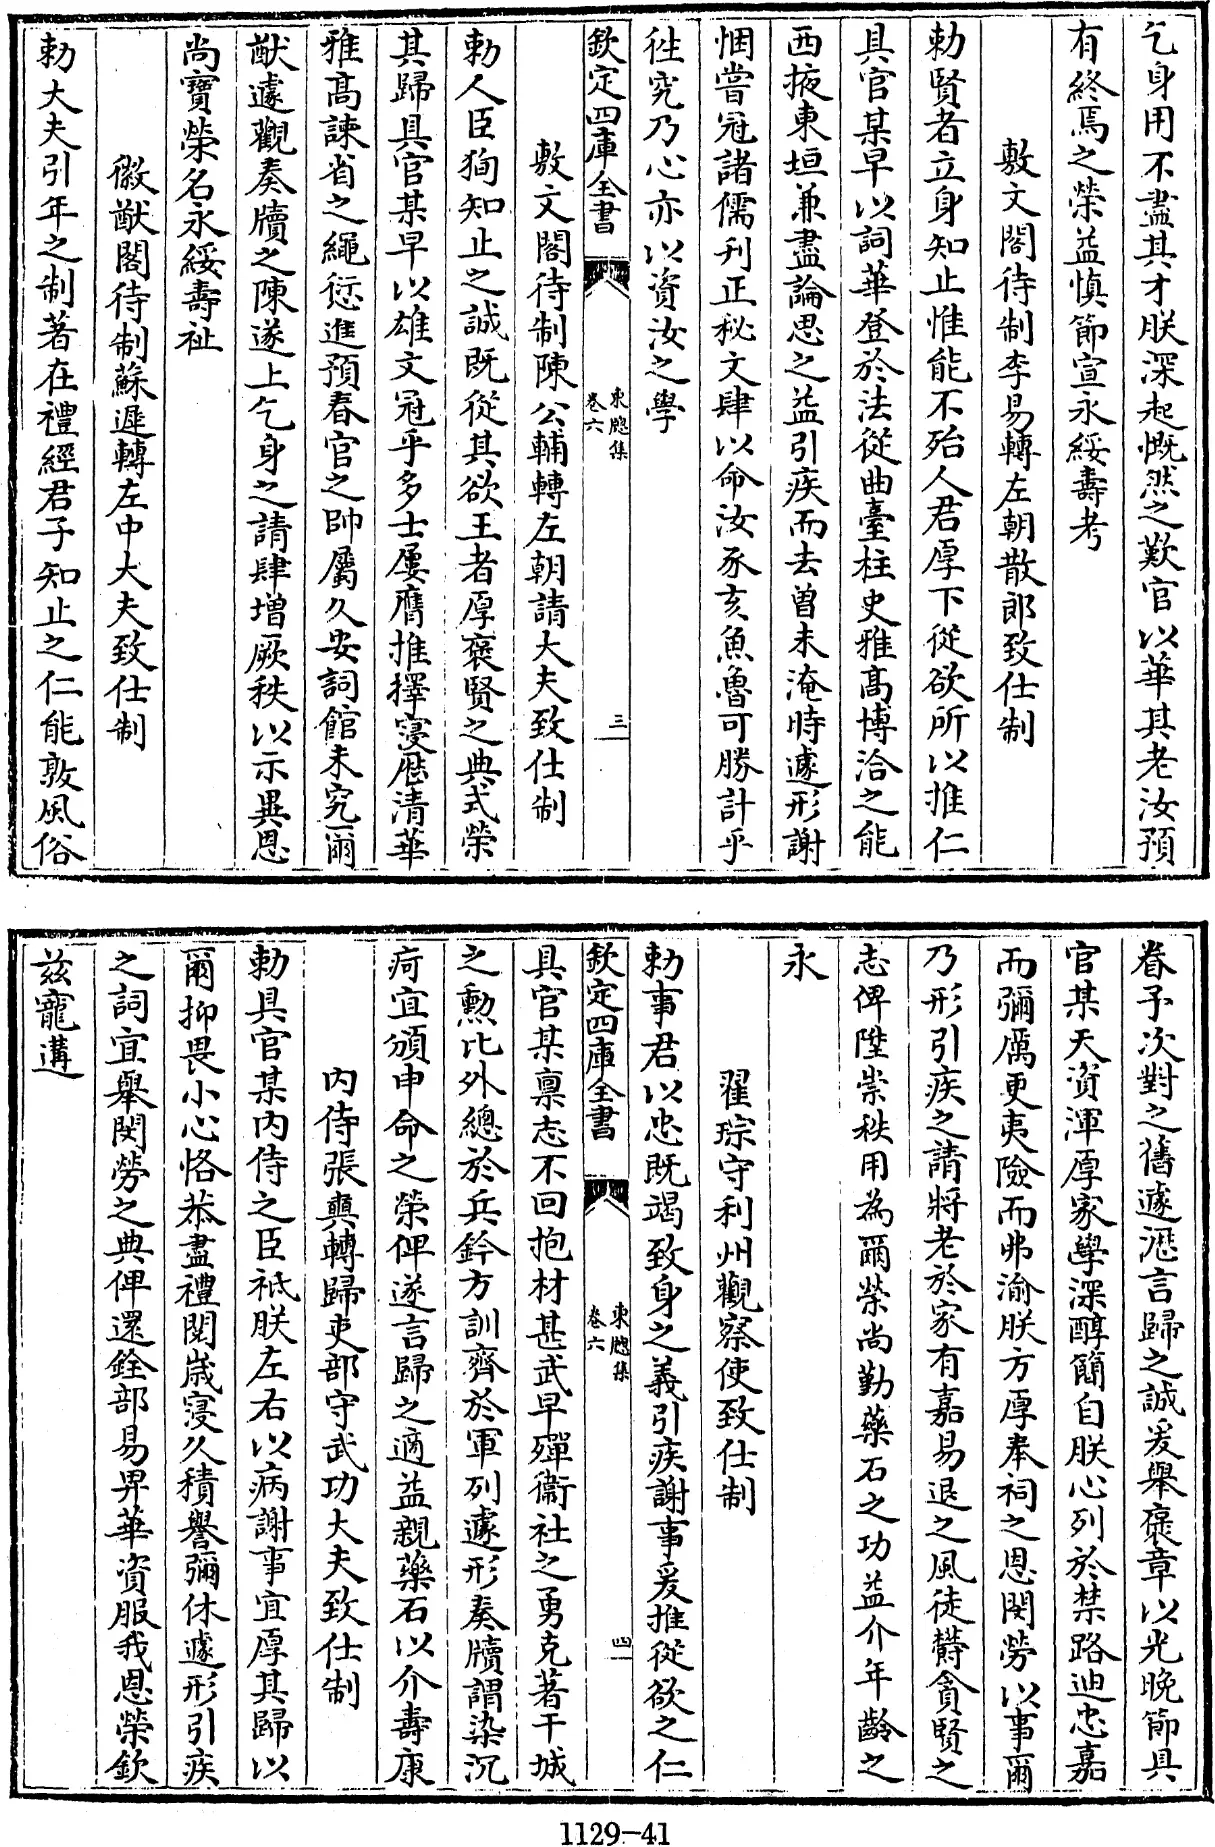 乞身用不盡其才朕深起慨然之歎官以華其老汝預
有終焉之榮益慎節宣永綏壽考
敷文閣待制李易轉左朝散郎致仕制
勅賢者立身知止惟能不殆人君厚下從欲所以推仁
具官某早以詞華登於法從曲臺柱史雅髙博洽之能
西掖東垣兼盡論思之益引疾而去曽未淹時遽形謝
悃嘗冠諸儒刋正秘文肆以命汝豕亥魚魯可勝計乎
徃究乃心亦以資汝之學
欽定四庫全書
東牕集
卷六
三
敷文閣待制陳公輔轉左朝請大夫致仕制
勅人臣狥知止之誠既從其欲王者厚襃賢之典式榮
其歸具官某早以雄文冠乎多士屢膺推擇寖歴清華
雅髙諫省之繩愆進預春官之帥屬久安詞館未究爾
猷遽觀奏牘之陳遂上乞身之請肆增厥秩以示異恩
尚寶榮名永綏壽祉
徽猷閣待制蘇遲轉左中大夫致仕制
勅大夫引年之制著在禮經君子知止之仁能敦風俗
眷予次對之舊遽瀝言歸之誠爰舉襃章以光晚節具
官某天資渾厚家學深醇簡自朕心列於禁路迪忠嘉
而彌厲更夷險而弗渝朕方厚奉祠之恩閔勞以事爾
乃形引疾之請將老於家有嘉易退之風徒欝貪賢之
志俾陞崇秩用為爾榮尚勤藥石之功益介年齡之
永
翟琮守利州觀察使致仕制
勅事君以忠既竭致身之義引疾謝事爰推從欲之仁
欽定四庫全書
東牕集
卷六
四
具官某禀志不回抱材甚武早殫衞社之勇克著干城
之勲比外總於兵鈐方訓齊於軍列遽形奏牘謂染沉
疴宜頒申命之榮俾遂言歸之適益親藥石以介壽康
内侍張㒷轉歸吏部守武功大夫致仕制
勅具官某内侍之臣祗朕左右以病謝事宜厚其歸以
爾抑畏小心恪恭盡禮閱嵗寖久積譽彌休遽形引疾
之詞宜舉閔勞之典俾還銓部易畀華資服我恩榮欽
兹寵遘
1129-41